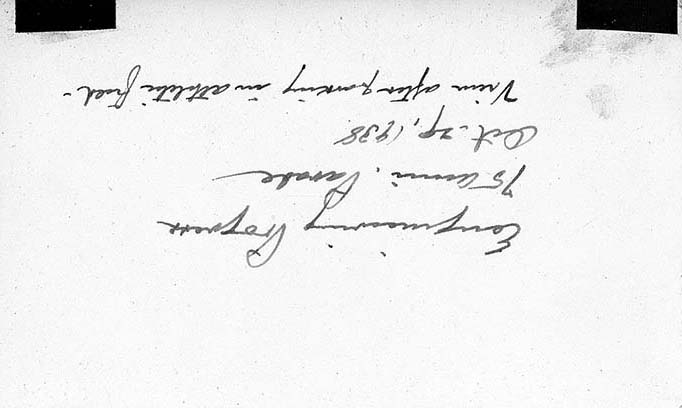 Engineering Progress
75 Anni. Parade
Oct. 29, 1938
View after parking in athletic field -